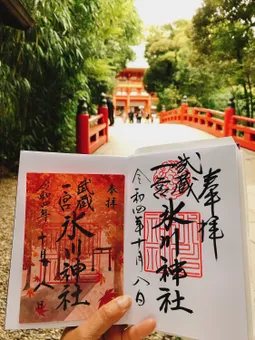 奉拝
武蔵
一宮
氷川神社
令和四年十月八日
奉拝
武蔵
一宮
氷川神社